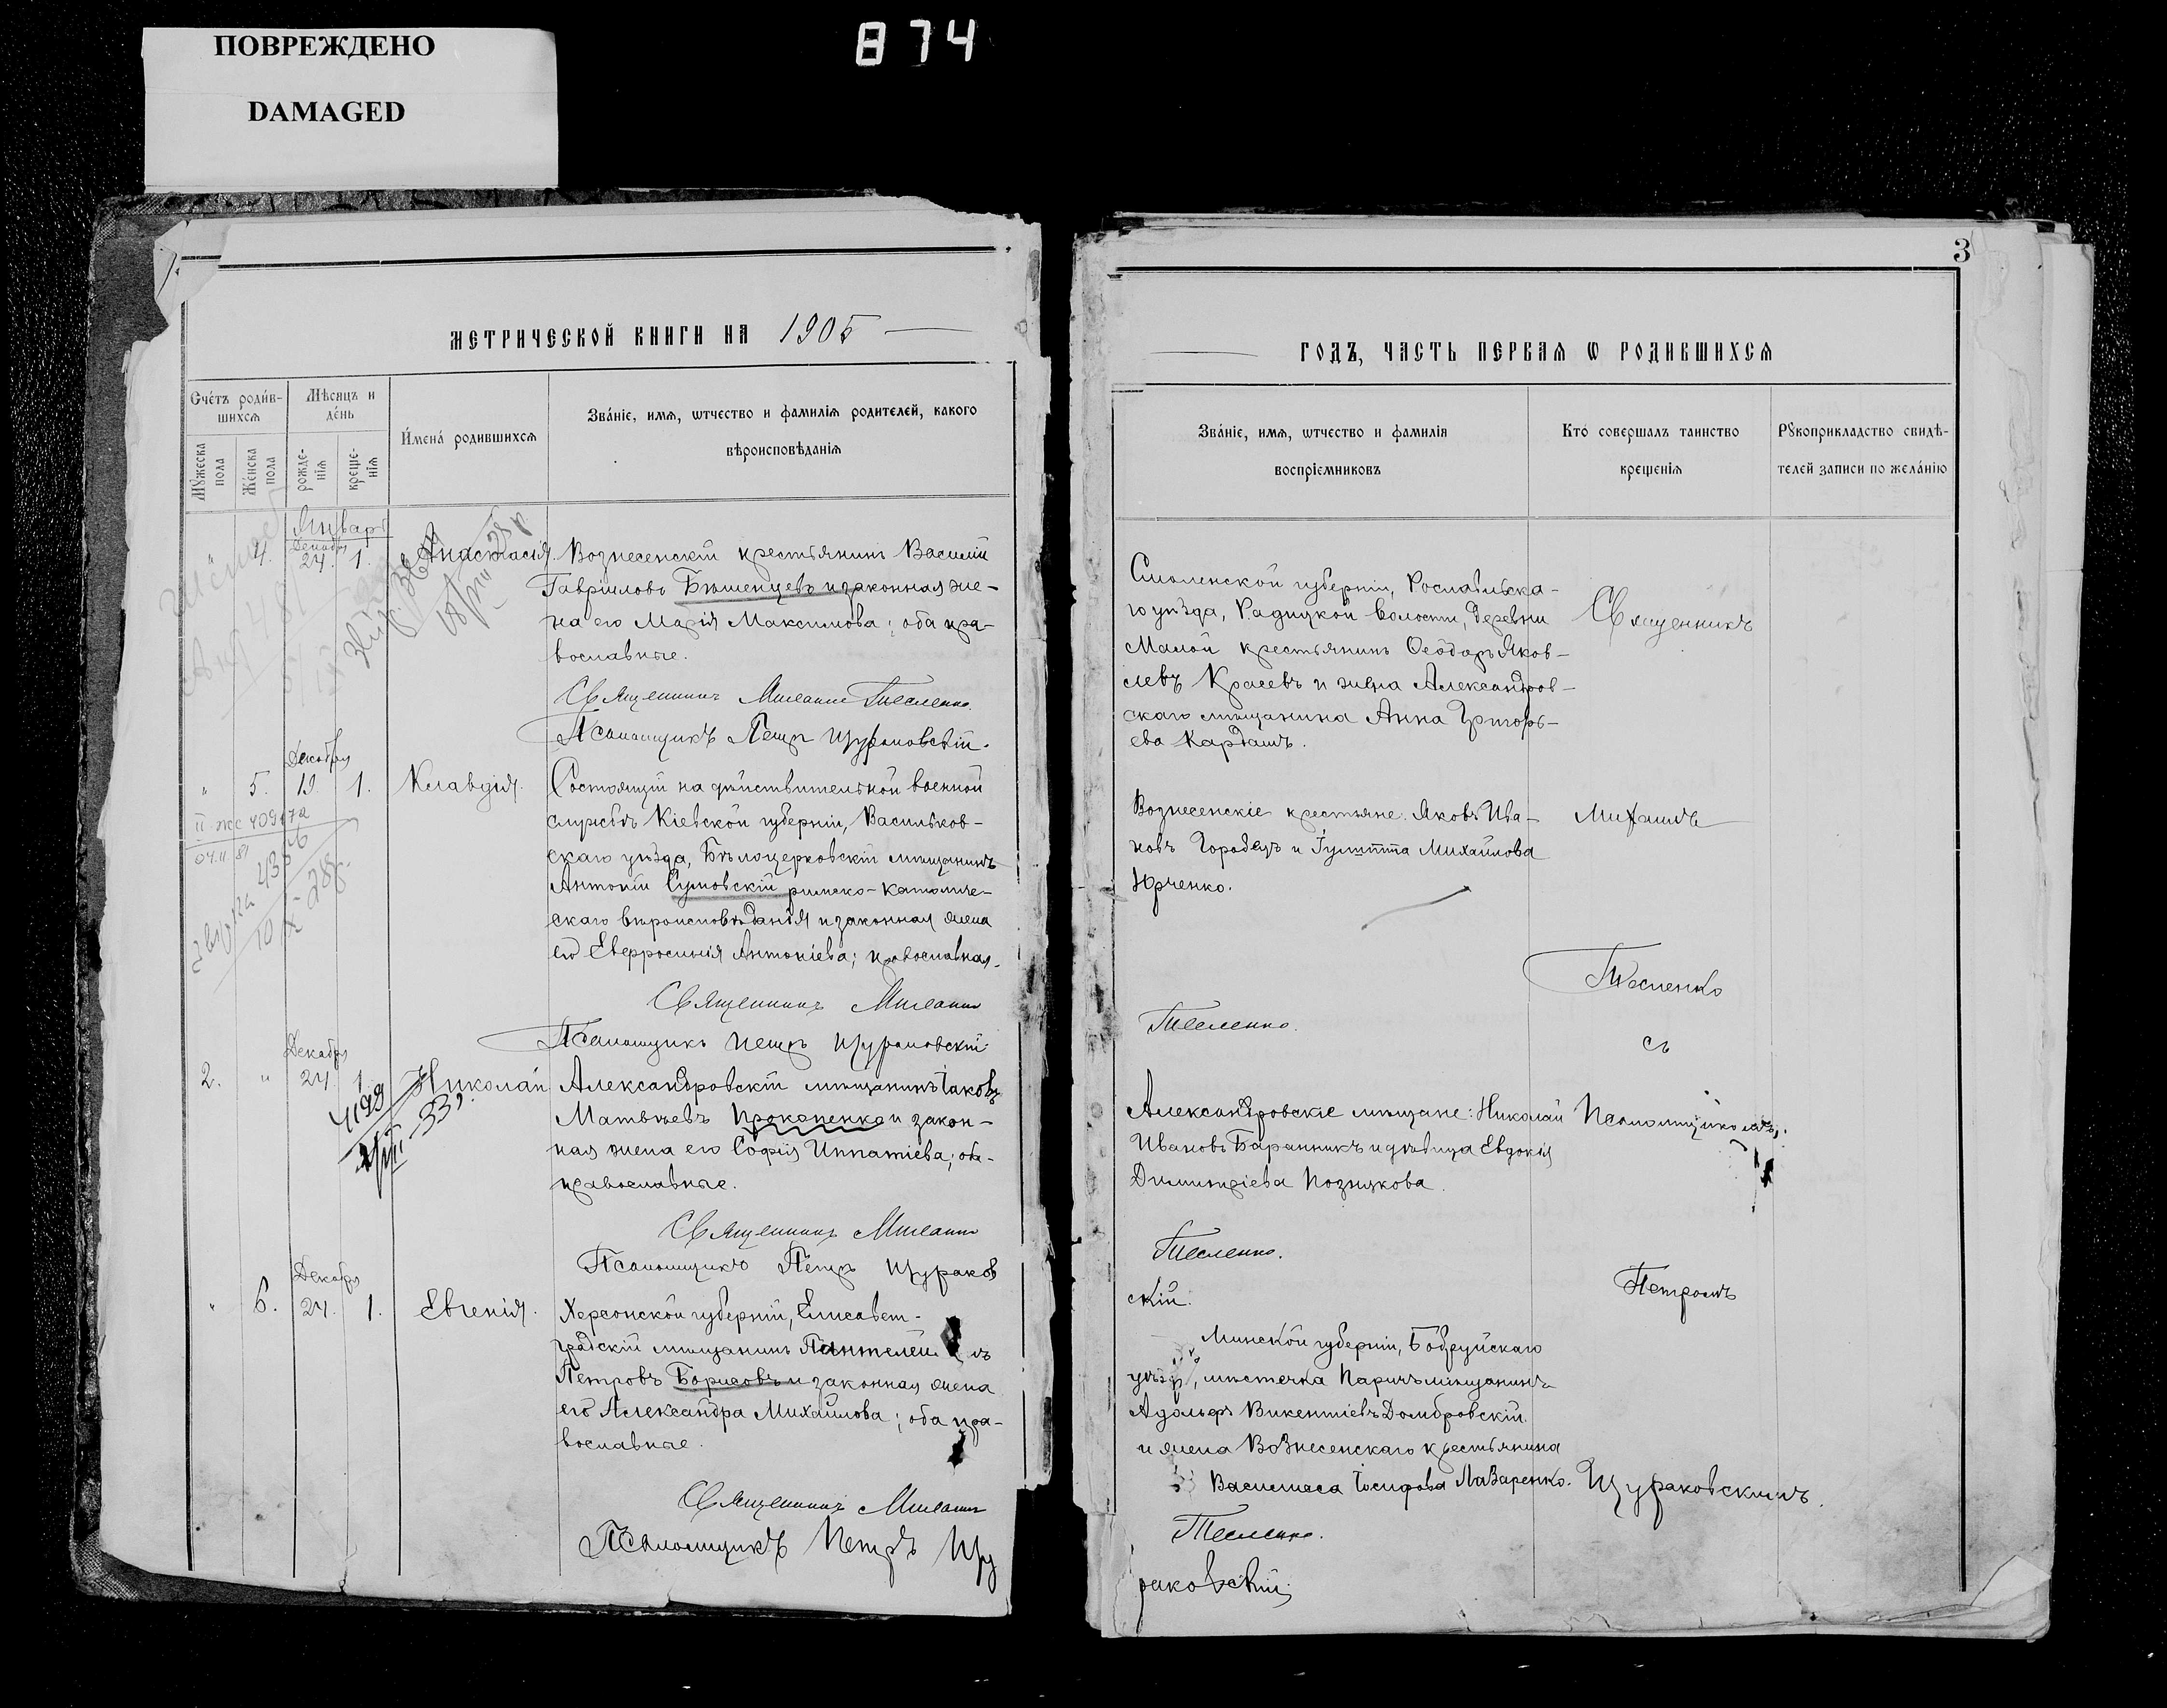 ПОВРЕЖДЕНО
DAMAGED
874
МЕТРИЧЕСКОЙ КНИГИ НА 1905
Счетъ родив-
шихся
Мѣсяцъ и
день
Имена родившихся
Званіе, имя, ѿтчество и фамилія родителей, какого
вѣроисповѣданія
Мꙋжеска
пола
Женска
пола
рожде-
нія
креще-
нія
Январь
Декабря
" 4. 24. 1. Анастасія. Вознесенскій крестьянинъ Василій
Гавріиловъ и законная же-
на его Марія Максимова; оба пра-
вославные.
Священникъ Михаилъ Тесленко.
Псаломщикъ Петръ Щураковскій.
Декабря
" 5. 19 1. Клавдія. Состоящій на дѣйствительной военной
службѣ Кіевской губерніи, Васильков-
скаго уѣзда, Бѣлоцерковскій мѣщанинъ
Антоній Сумовскій римско-католиче-
скаго вѣроисповѣданія и законная жена
его Евфросинія Антоніева; православная.
Священникъ Михаилъ
Псаломщикъ Петръ Щураковскій
Декабря
2. " 24. 1. Николай Александровскій мѣщанинъ Іаковъ
Матвѣевъ Прокопенко и закон-
ная жена его Софія Ипатіева; оба
православные.
Священникъ Михаилъ
Псаломщикъ Петръ Щураков
Декабря
" 6. 24. 1. Евгенія. Херсонской губерніи, Елисавет-
градскій мѣщанинъ Пантелеи
Петровъ Борисовъ и законная жена
его Александра Михайлова; оба пра-
вославные.
Священникъ Михаилъ
Псаломщикъ Петръ Щу
3
ГОДЪ, ЧАСТЬ ПЕРВАЯ Ѡ РОДИВШИХСЯ
Званіе, имя, ѿтчество и фамилія
воспріемниковъ
Кто совершалъ таинство
крещенія
Рꙋкоприкладство свидѣ-
телей записи по желанію
Смоленской губерніи, Рославльска-
го уѣзда, волости, деревни
Малой крестьянинъ Ѳеодоръ Яков-
левъ Красевъ и жена Александров-
скаго мѣщанина Анна Григорь-
ева Кардашъ.
Священникъ
Вознесенскіе крестьяне: Яковъ Ива-
новъ Городецъ и Іулитта Михайлова
Юрченко.
Михаилъ
Тесленко
Тесленко.
съ
Александровскіе мѣщане: Николай
Ивановъ Баранникъ и дѣвица Евдокія
Димитріева Познякова.
Псаломщикомъ
Тесленко.
скій.
Петромъ
Минской губерніи, Бобруйскаго
уѣзд, мѣстечка Паричъ мѣщанинъ
Адольфъ Викентіевъ Домбровскій
и жена Вознесенскаго крестьянина
Василиса Іосифова Лазаренко.
Щураковскимъ.
Тесленко.
раковскій